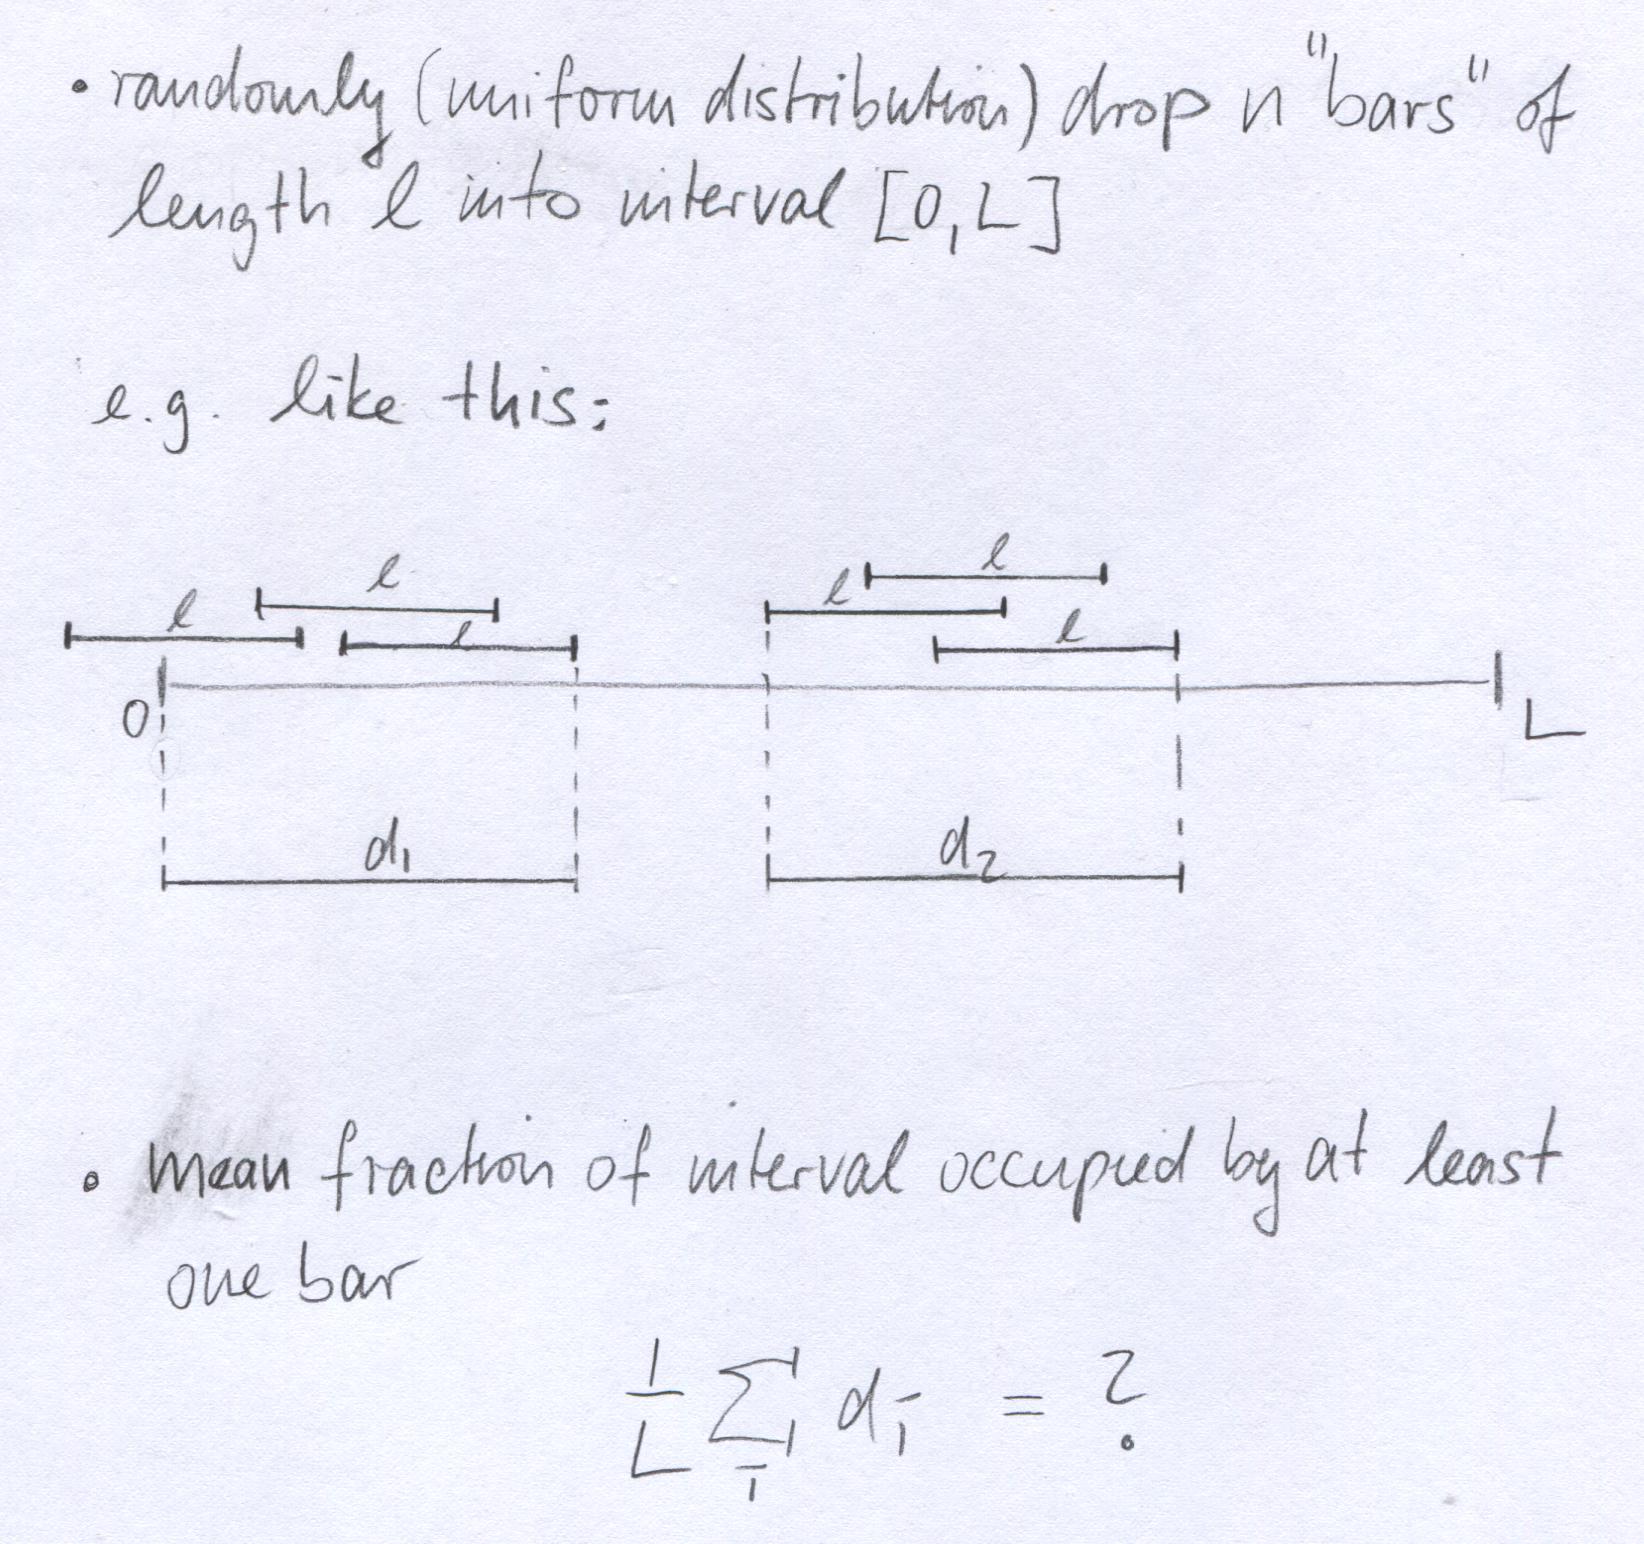 • randomly (uniform distribution) drop n "bars" of
length l into interval [0,L]
e.g. like this:
l l l l l l
0 L
d₁ d₂
• mean fraction of interval occupied by at least
one bar
1/L ∑ᵢ dᵢ = ?